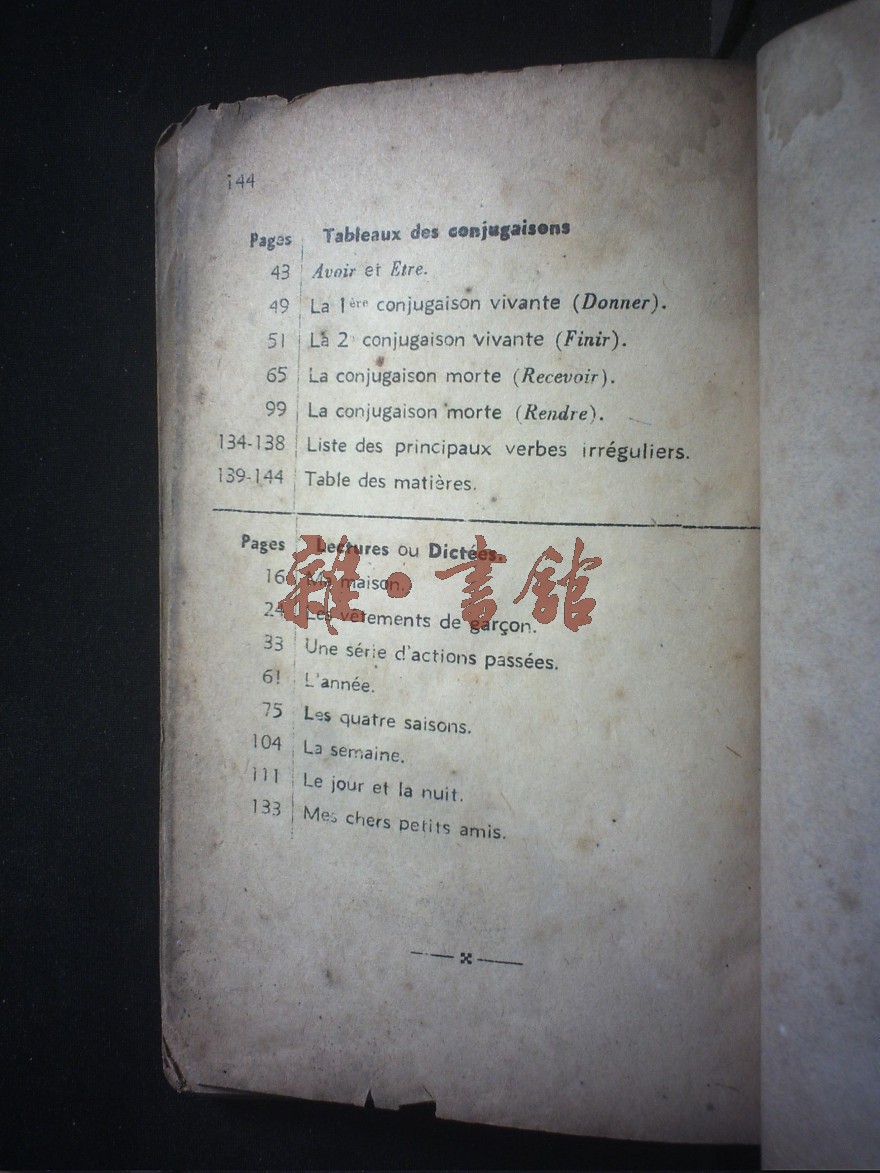 144
Pages Tableaux des conjugaisons
43 Avoir et Etre.
49 La 1ère conjugaison vivante (Donner).
51 La 2e conjugaison vivante (Finir).
65 La conjugaison morte (Recevoir).
99 La conjugaison morte (Rendre).
134-138 Liste des principaux verbes irréguliers.
139-144 Table des matières.
Pages Lectures ou Dictées.
16 Ma maison.
24 Les vêtements de garçon.
33 Une série d'actions passées.
61 L'année.
75 Les quatre saisons.
104 La semaine.
111 Le jour et la nuit.
133 Mes chers petits amis.
雜·書館